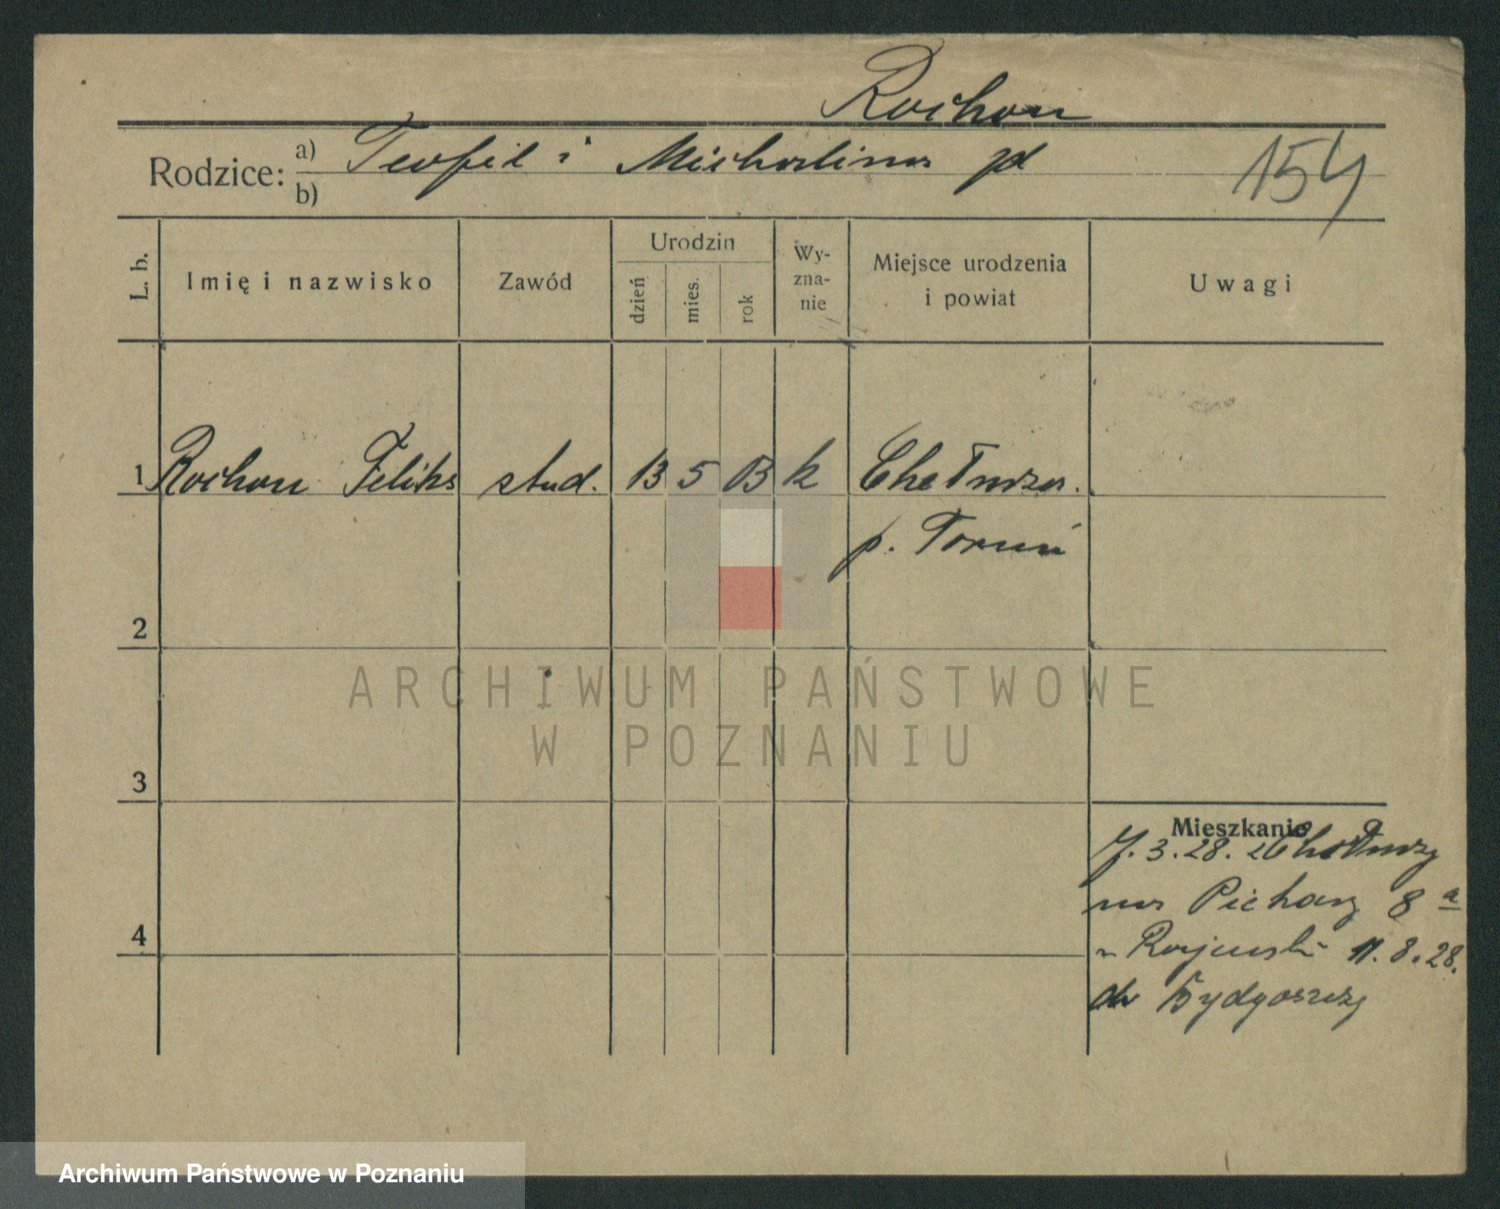 Rochon
Rodzice: a) Teofil i Michalina pd
b)
154
L. b. Imię i nazwisko Zawód Urodzin dzień mies. rok Wy-zna-nie Miejsce urodzenia i powiat Uwagi
1 Rochon Feliks stud. 13 5 03 k Chełmża.
p. Toruń
2
ARCHIWUM PAŃSTWOWE
W POZNANIU
3
Mieszkanie
7. 3. 28. z Chełmży
na 8 a
11. 8. 28.
4
do Bydgoszczy
Archiwum Państwowe w Poznaniu